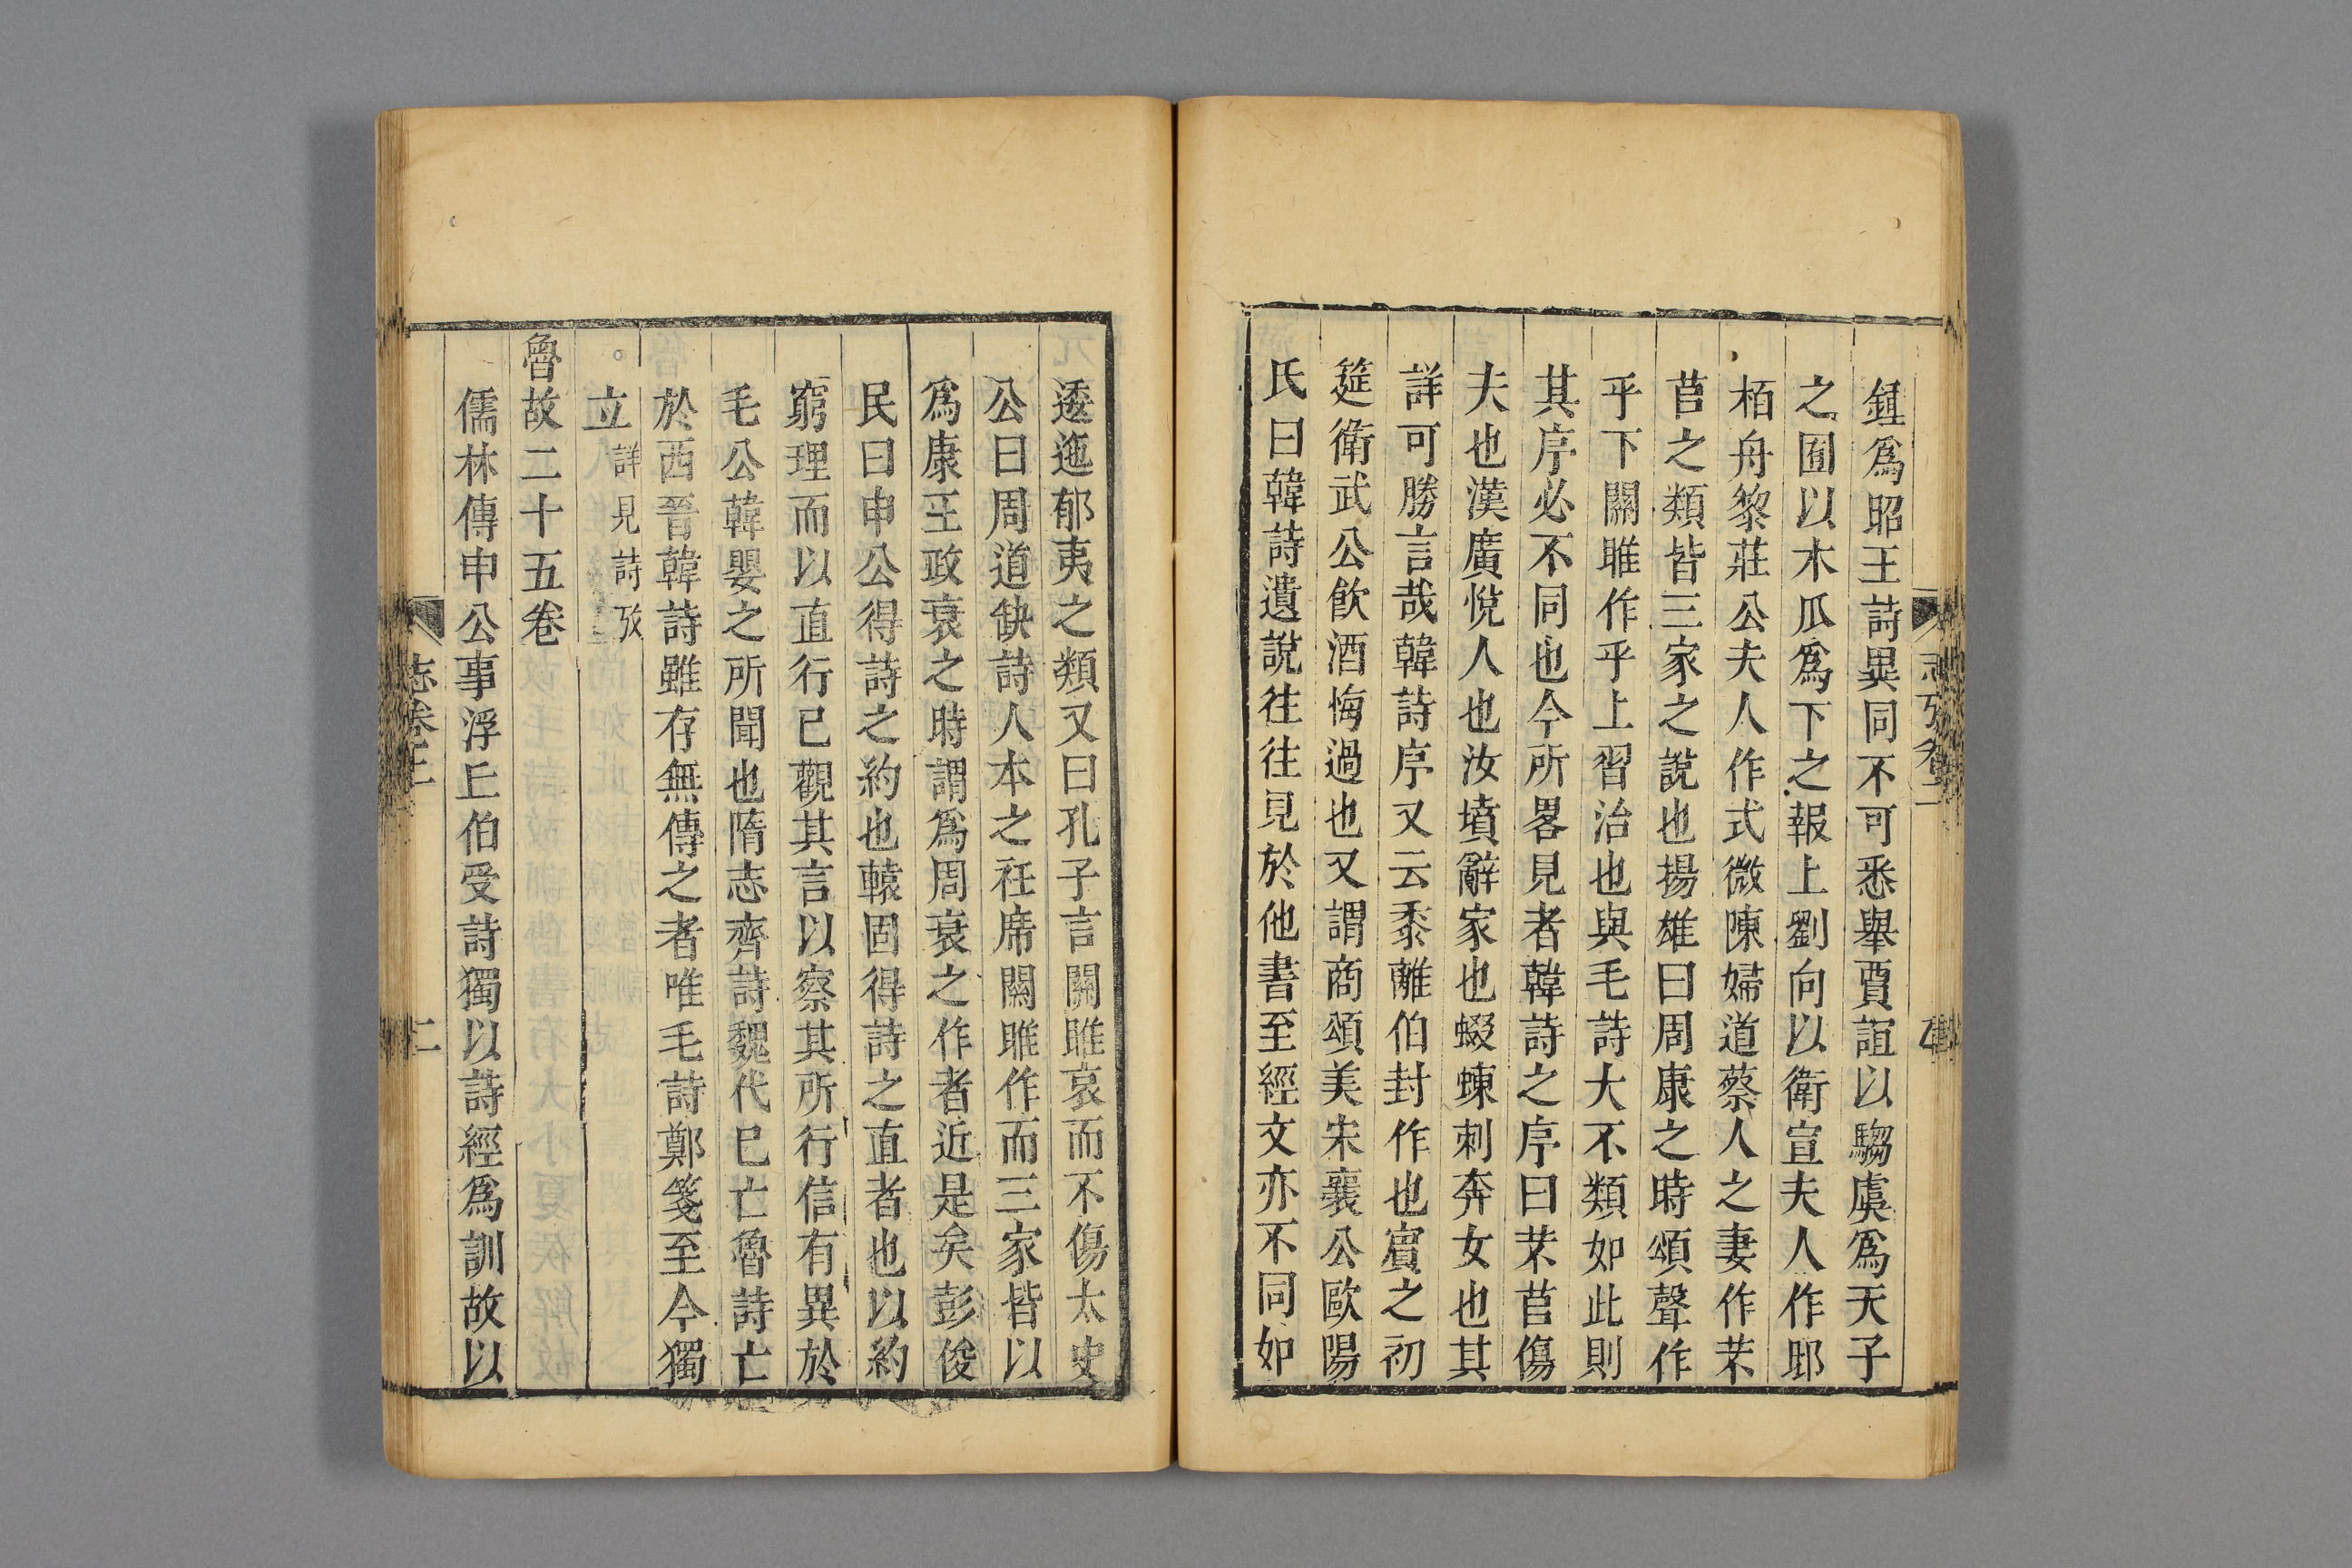 鍾爲昭王詩異同不可悉舉賈誼以騶虞爲天子
之囿以木瓜爲下之報上劉向以衛宣夫人作邶
栢舟黎莊公夫人作式微陳婦道蔡人之妻作芣
苢之類皆三家之說也揚雄曰周康之時頌聲作
乎下關雎作乎上習治也與毛詩大不類如此則
其序必不同也今所畧見者韓詩之序曰芣苢傷
夫也漢廣悅人也汝墳辭家也蝃蝀刺奔女也其
詳可勝言哉韓詩序又云黍離伯封作也賔之初
筵衛武公飮酒悔過也又謂商頌美宋襄公歐陽
氏曰韓詩遺說往往見於他書至經文亦不同如
逶迤郁夷之類又曰孔子言關雎哀而不傷太史
公曰周道缺詩人本之衽席關雎作而三家皆以
爲康王政衰之時謂爲周衰之作者近是矣彭俊
民曰申公得詩之約也轅固得詩之直者也以約
窮理而以直行已觀其言以察其所行信有異於
毛公韓嬰之所聞也隋志齊詩魏代已亡魯詩亡
於西晉韓詩雖存無傳之者唯毛詩鄭箋至今獨
立詳見詩攷
魯故二十五卷
儒林傳申公事浮丘伯受詩獨以詩經爲訓故以
志卷二
二